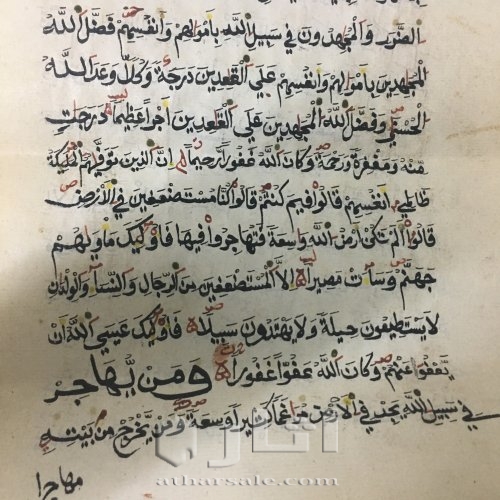 الضرر والمجهدون في سبيل الله باموالهم وانفسهم فضل الله
المجهدين باموالهم وانفسهم علي القعدين درجة وكلا وعد الله
الحسني وفضل الله المجهدين علي القعدين اجرا عظيما درجت
منه ومغفرة ورحمة وكان الله غفورا رحيما ان الذين توفيهم الملئكة
ظالمي انفسهم قالوا فيم كنتم قالوا كنا مستضعفين في الارض
قالوا الم تكن ارض الله واسعة فتهاجروا فيها فاولئك ماويهم
جهنم وساءت مصيرا الا المستضعفين من الرجال والنساء والولدان
لا يستطيعون حيلة ولا يهتدون سبيلا فاولئك عسي الله ان
يعفوا عنهم وكان الله عفوا غفورا ومن يهاجر
في سبيل الله يجد في الارض مراغما كثيرا وسعة ومن يخرج من بيته
مهاجرا
آثار
atharsale.com